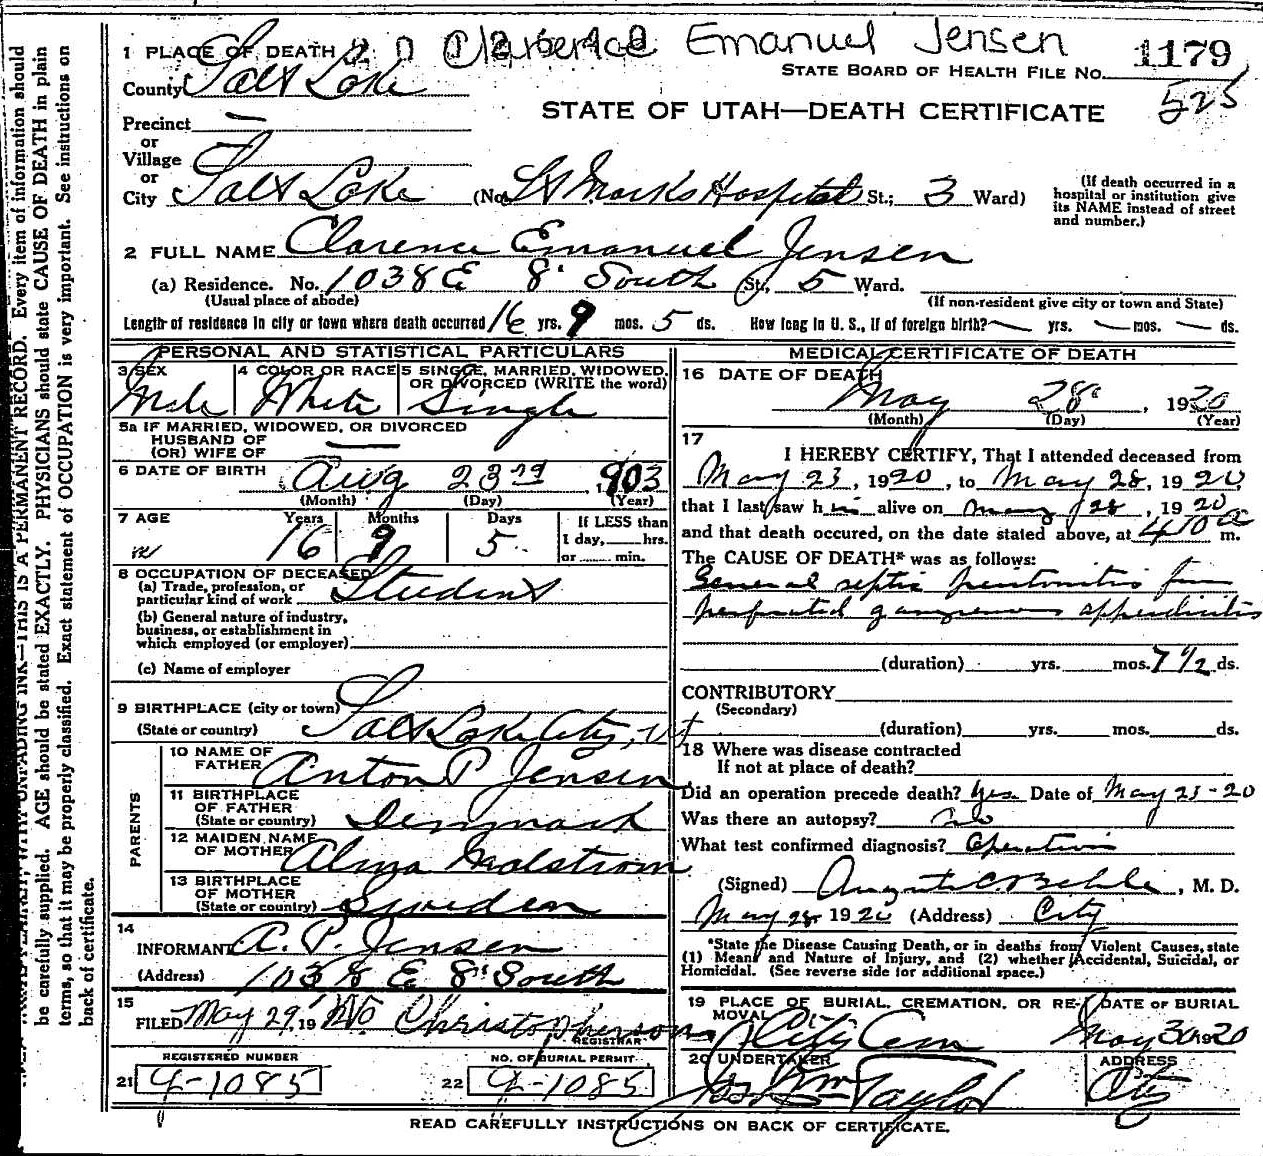 Clarence Emanuel Jensen
1 PLACE OF DEATH
STATE BOARD OF HEALTH FILE No. 1179
County Salt Lake
525
STATE OF UTAH—DEATH CERTIFICATE
Precinct —
or
Village
or
City Salt Lake (No. St Marks Hospital St.; 3 Ward)
(If death occurred in a hospital or institution give its NAME instead of street and number.)
2 FULL NAME Clarence Emanuel Jensen
(a) Residence. No. 1038 E 8' South St., 5 Ward.
(Usual place of abode) (If non-resident give city or town and State)
Length of residence in city or town where death occurred 16 yrs. 9 mos. 5 ds. How long in U. S., if of foreign birth? — yrs. — mos. — ds.
PERSONAL AND STATISTICAL PARTICULARS
3 SEX Male
4 COLOR OR RACE White
5 SINGLE, MARRIED, WIDOWED, OR DIVORCED (WRITE the word) Single
5a IF MARRIED, WIDOWED, OR DIVORCED
HUSBAND OF
(OR) WIFE OF —
6 DATE OF BIRTH Aug 23rd, 1903
(Month) (Day) (Year)
7 AGE Years Months Days If LESS than
16 9 5 1 day, hrs.
or min.
8 OCCUPATION OF DECEASED
(a) Trade, profession, or
particular kind of work Student
(b) General nature of industry,
business, or establishment in
which employed (or employer)
(c) Name of employer
9 BIRTHPLACE (city or town)
(State or country) Salt Lake City, Ut
PARENTS
10 NAME OF
FATHER Anton P Jensen
11 BIRTHPLACE
OF FATHER
(State or country) Denmark
12 MAIDEN NAME
OF MOTHER Alma Malstrom
13 BIRTHPLACE
OF MOTHER
(State or country) Sweden
14
INFORMANT A. P. Jensen
(Address) 1038 E 8' South
15
FILED May 29, 1920 Christopherson
REGISTRAR
REGISTERED NUMBER NO. OF BURIAL PERMIT
21 G-1085 22 G-1085
MEDICAL CERTIFICATE OF DEATH
16 DATE OF DEATH
May 28, 1920
(Month) (Day) (Year)
17
I HEREBY CERTIFY, That I attended deceased from
May 23, 1920, to May 28, 1920,
that I last saw him alive on May 28, 1920
and that death occured, on the date stated above, at 410 a m.
The CAUSE OF DEATH* was as follows:
General septic peritonitis from
perforated gangrenous appendicitis
(duration) yrs. mos. 7 1/2 ds.
CONTRIBUTORY
(Secondary)
(duration) yrs. mos. ds.
18 Where was disease contracted
If not at place of death?
Did an operation precede death? Yes Date of May 23-20
Was there an autopsy? No
What test confirmed diagnosis? Operation
(Signed) Augustus C Behle, M. D.
May 28, 1920 (Address) City
*State the Disease Causing Death, or in deaths from Violent Causes, state
(1) Means and Nature of Injury, and (2) whether Accidental, Suicidal, or
Homicidal. (See reverse side for additional space.)
19 PLACE OF BURIAL, CREMATION, OR RE- DATE OF BURIAL
MOVAL City Cem May 30 1920
20 UNDERTAKER ADDRESS
Jos Wm Taylor City
READ CAREFULLY INSTRUCTIONS ON BACK OF CERTIFICATE.
WITH UNFADING INK—THIS IS A PERMANENT RECORD. Every item of information should
be carefully supplied. AGE should be stated EXACTLY. PHYSICIANS should state CAUSE OF DEATH in plain
terms, so that it may be properly classified. Exact statement of OCCUPATION is very important. See instructions on
back of certificate.